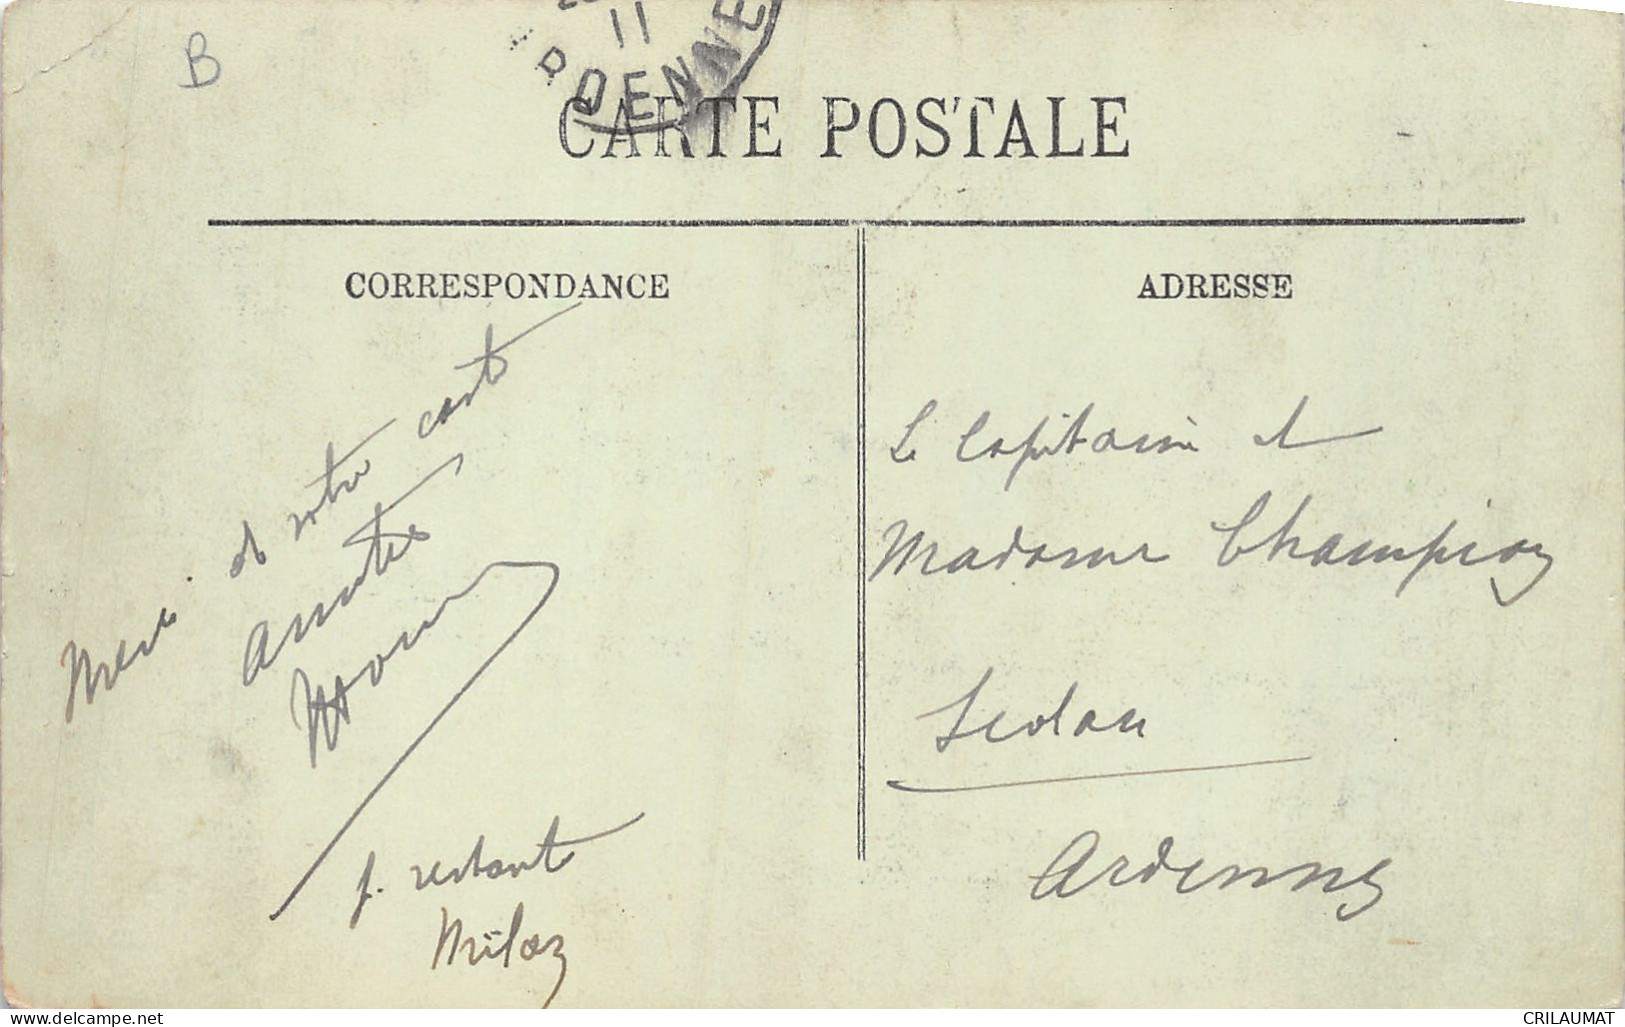 B
11
ARDENNE
CARTE POSTALE
CORRESPONDANCE
ADRESSE
Merci de votre carte
Amitiés
p. restante
Milan
Le Capitaine et
Madame Champion
Sedan
Ardennes
www.delcampe.net
CRILAUMAT